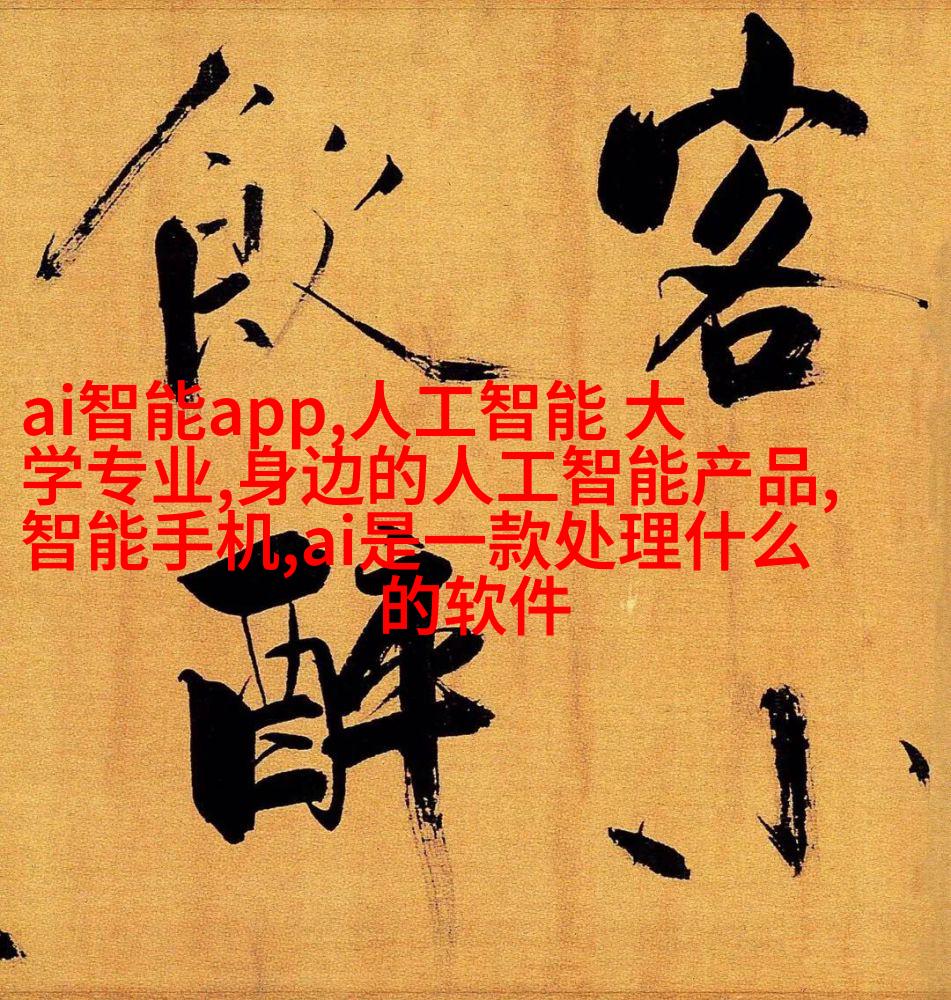 客小
飲醉
ai智能app,人工智能 大
学专业,身边的人工智能产品,
智能手机,ai是一款处理什么
的软件